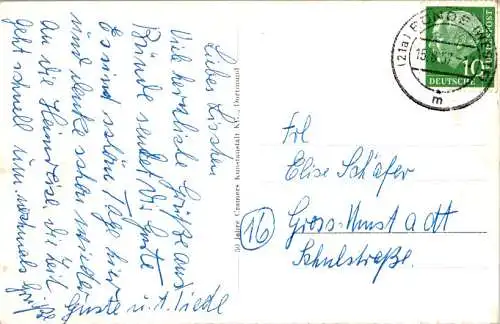 Liebes Lieschen
Viele herzliche Grüße aus
Bünde sendet Dir Guste
Es sind schöne Tage hier
und denke schon wieder
an die Heimreise. die Zeit
geht schnell um. nochmals Grüße
Guste u. A. Tiede
50 Jahre Cramers Kunstanstalt KG., Dortmund
(21a) BÜNDE
15.
m
10
DEUTSCHE
BUNDESPOST
Frl
Elise Schäfer
16
Gross-Umst a dt
Schulstraße.